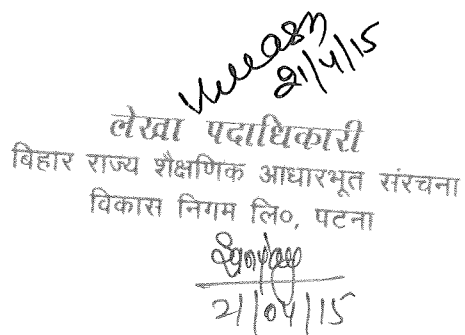 21/4/15
लेखा पदाधिकारी
बिहार राज्य शैक्षणिक आधारभूत संरचना
विकास निगम लि०, पटना
21/04/15